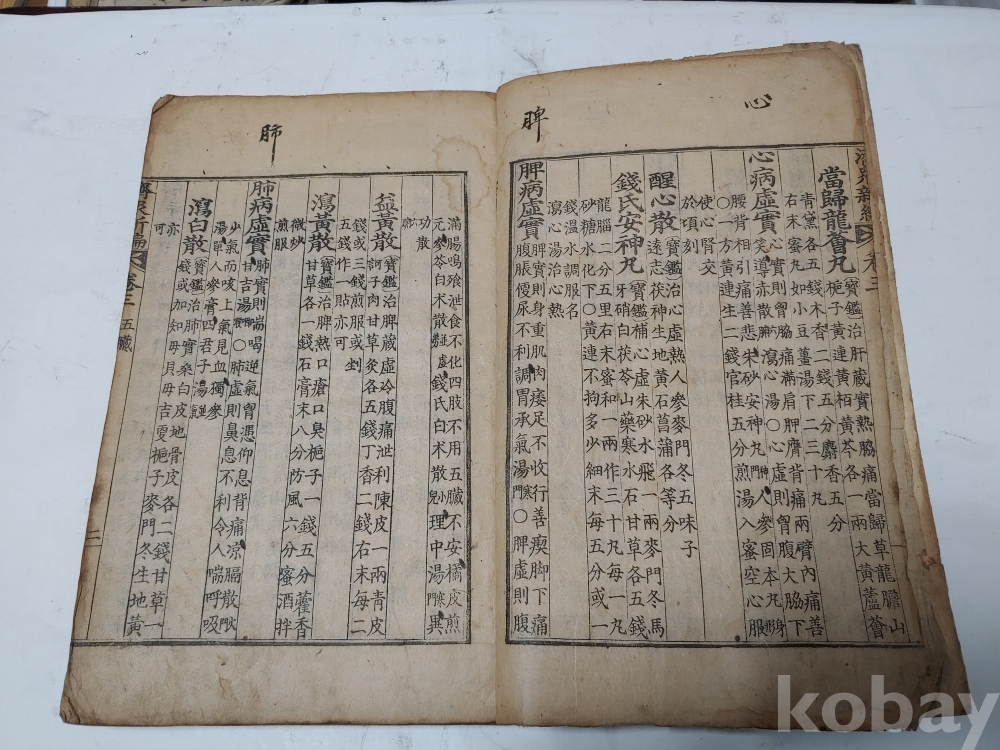 心
脾
當歸龍薈丸 寶鑑治肝藏實熱脇痛當歸草龍膽山
梔子黃連黃栢黃芩各一兩大黃蘆薈
青黛各五錢木香二錢五分麝香五分
右末蜜丸如小豆薑湯下二三十丸
心病虛實 心實則胷脇痛滿肩胛膺背痛兩臂內痛善
笑導赤散瀉心湯○心虛則胷腹大脇下
腰背相引痛善悲朱砂安神丸人參固本丸
○一方黃連生二錢官桂五分煎湯入蜜空心服
使心腎交
於頃刻
醒心散 寶鑑治心虛熱人參麥門冬五味子
遠志茯神生地黃石菖蒲各等分
錢氏安神丸 寶鑑補心朱砂水飛一兩麥門冬馬
牙硝白茯苓山藥寒水石甘草各五錢
龍腦二分五里右末蜜和一兩作三十丸每一丸
砂糖水化下○黃連不拘多少細末每五分或一
錢溫水調服名
瀉心湯治心熱
脾病虛實 脾實則身重肌肉痿足不收行善瘈脚下痛
腹脹便尿不利調胃承氣湯○脾虛則腹
肺
滿腸鳴飱泄食不化四肢不用五臟不安橘皮煎
元參苓白术散錢氏白术散理中湯異
功散
益黃散 寶鑑治脾藏虛冷腹痛泄利陳皮一兩靑皮
訶子肉甘草炙各五錢丁香二錢右末每二
錢或三錢煎服或剉
五錢作一貼亦可
瀉黃散 寶鑑治脾熱口瘡口臭梔子一錢五分藿香
甘草各一錢石膏末八分防風六分蜜酒拌
微炒
煎服
肺病虛實 肺實則喘喝逆氣胷憑仰息背痛凉膈散
甘吉湯○肺虛則鼻息不利令人喘呼吸
少氣而咳上氣見血獨參
湯單人參膏四君子湯
瀉白散 寶鑑治肺實桑白皮地骨皮各二錢甘草一
錢或加知母貝母吉更梔子麥門冬生地黃
亦
可
濟衆新編 卷三 五臟 二